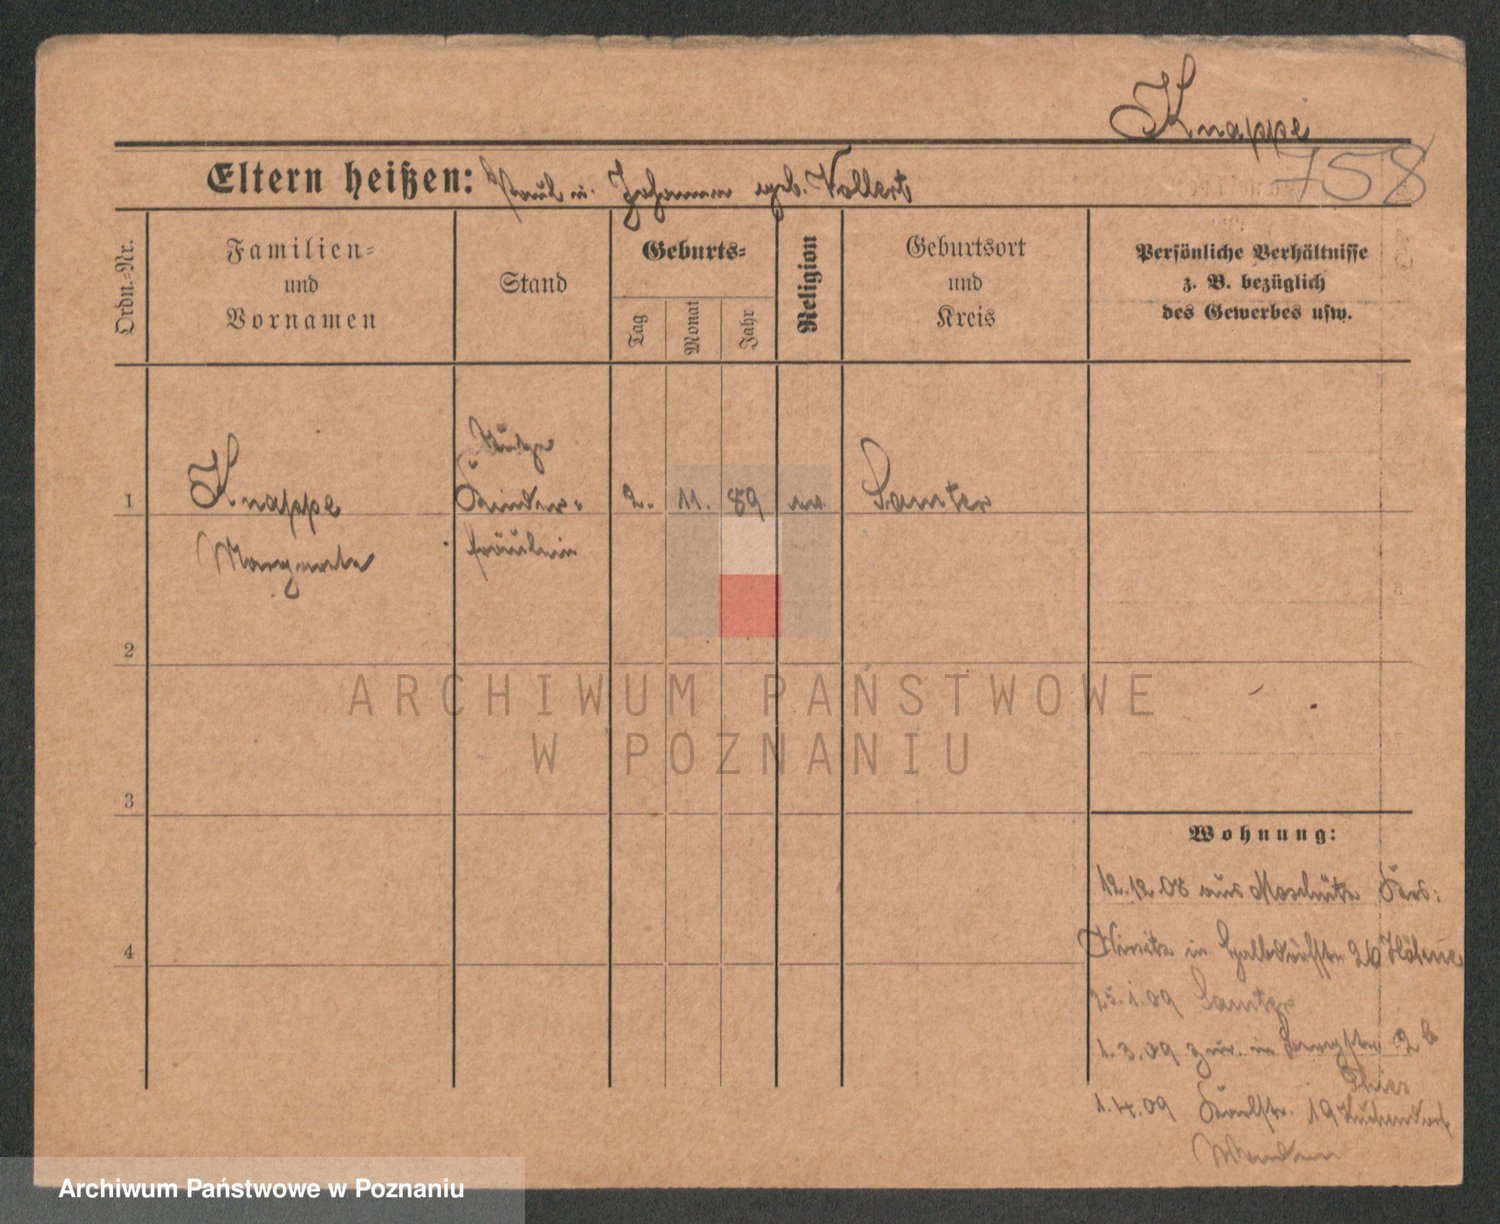 Knappe
758
Eltern heißen: Paul u. Johanna geb. Vollert
Ordn.-Nr.
Familien-
und
Vornamen
Stand
Geburts-
Tag
Monat
Jahr
Religion
Geburtsort
und
Kreis
Persönliche Verhältnisse
z. B. bezüglich
des Gewerbes usw.
Stütze
1 Knappe Kinder- 2. 11. 89 ev. Samter
Margarete fräulein
2
3
4
Wohnung:
12.12.08 aus Moschütz
in 26
25.1.09 Samter
1.3.09 zur. in 2b
1.4.09 Karlstr. 19
ARCHIWUM PAŃSTWOWE
W POZNANIU
Archiwum Państwowe w Poznaniu